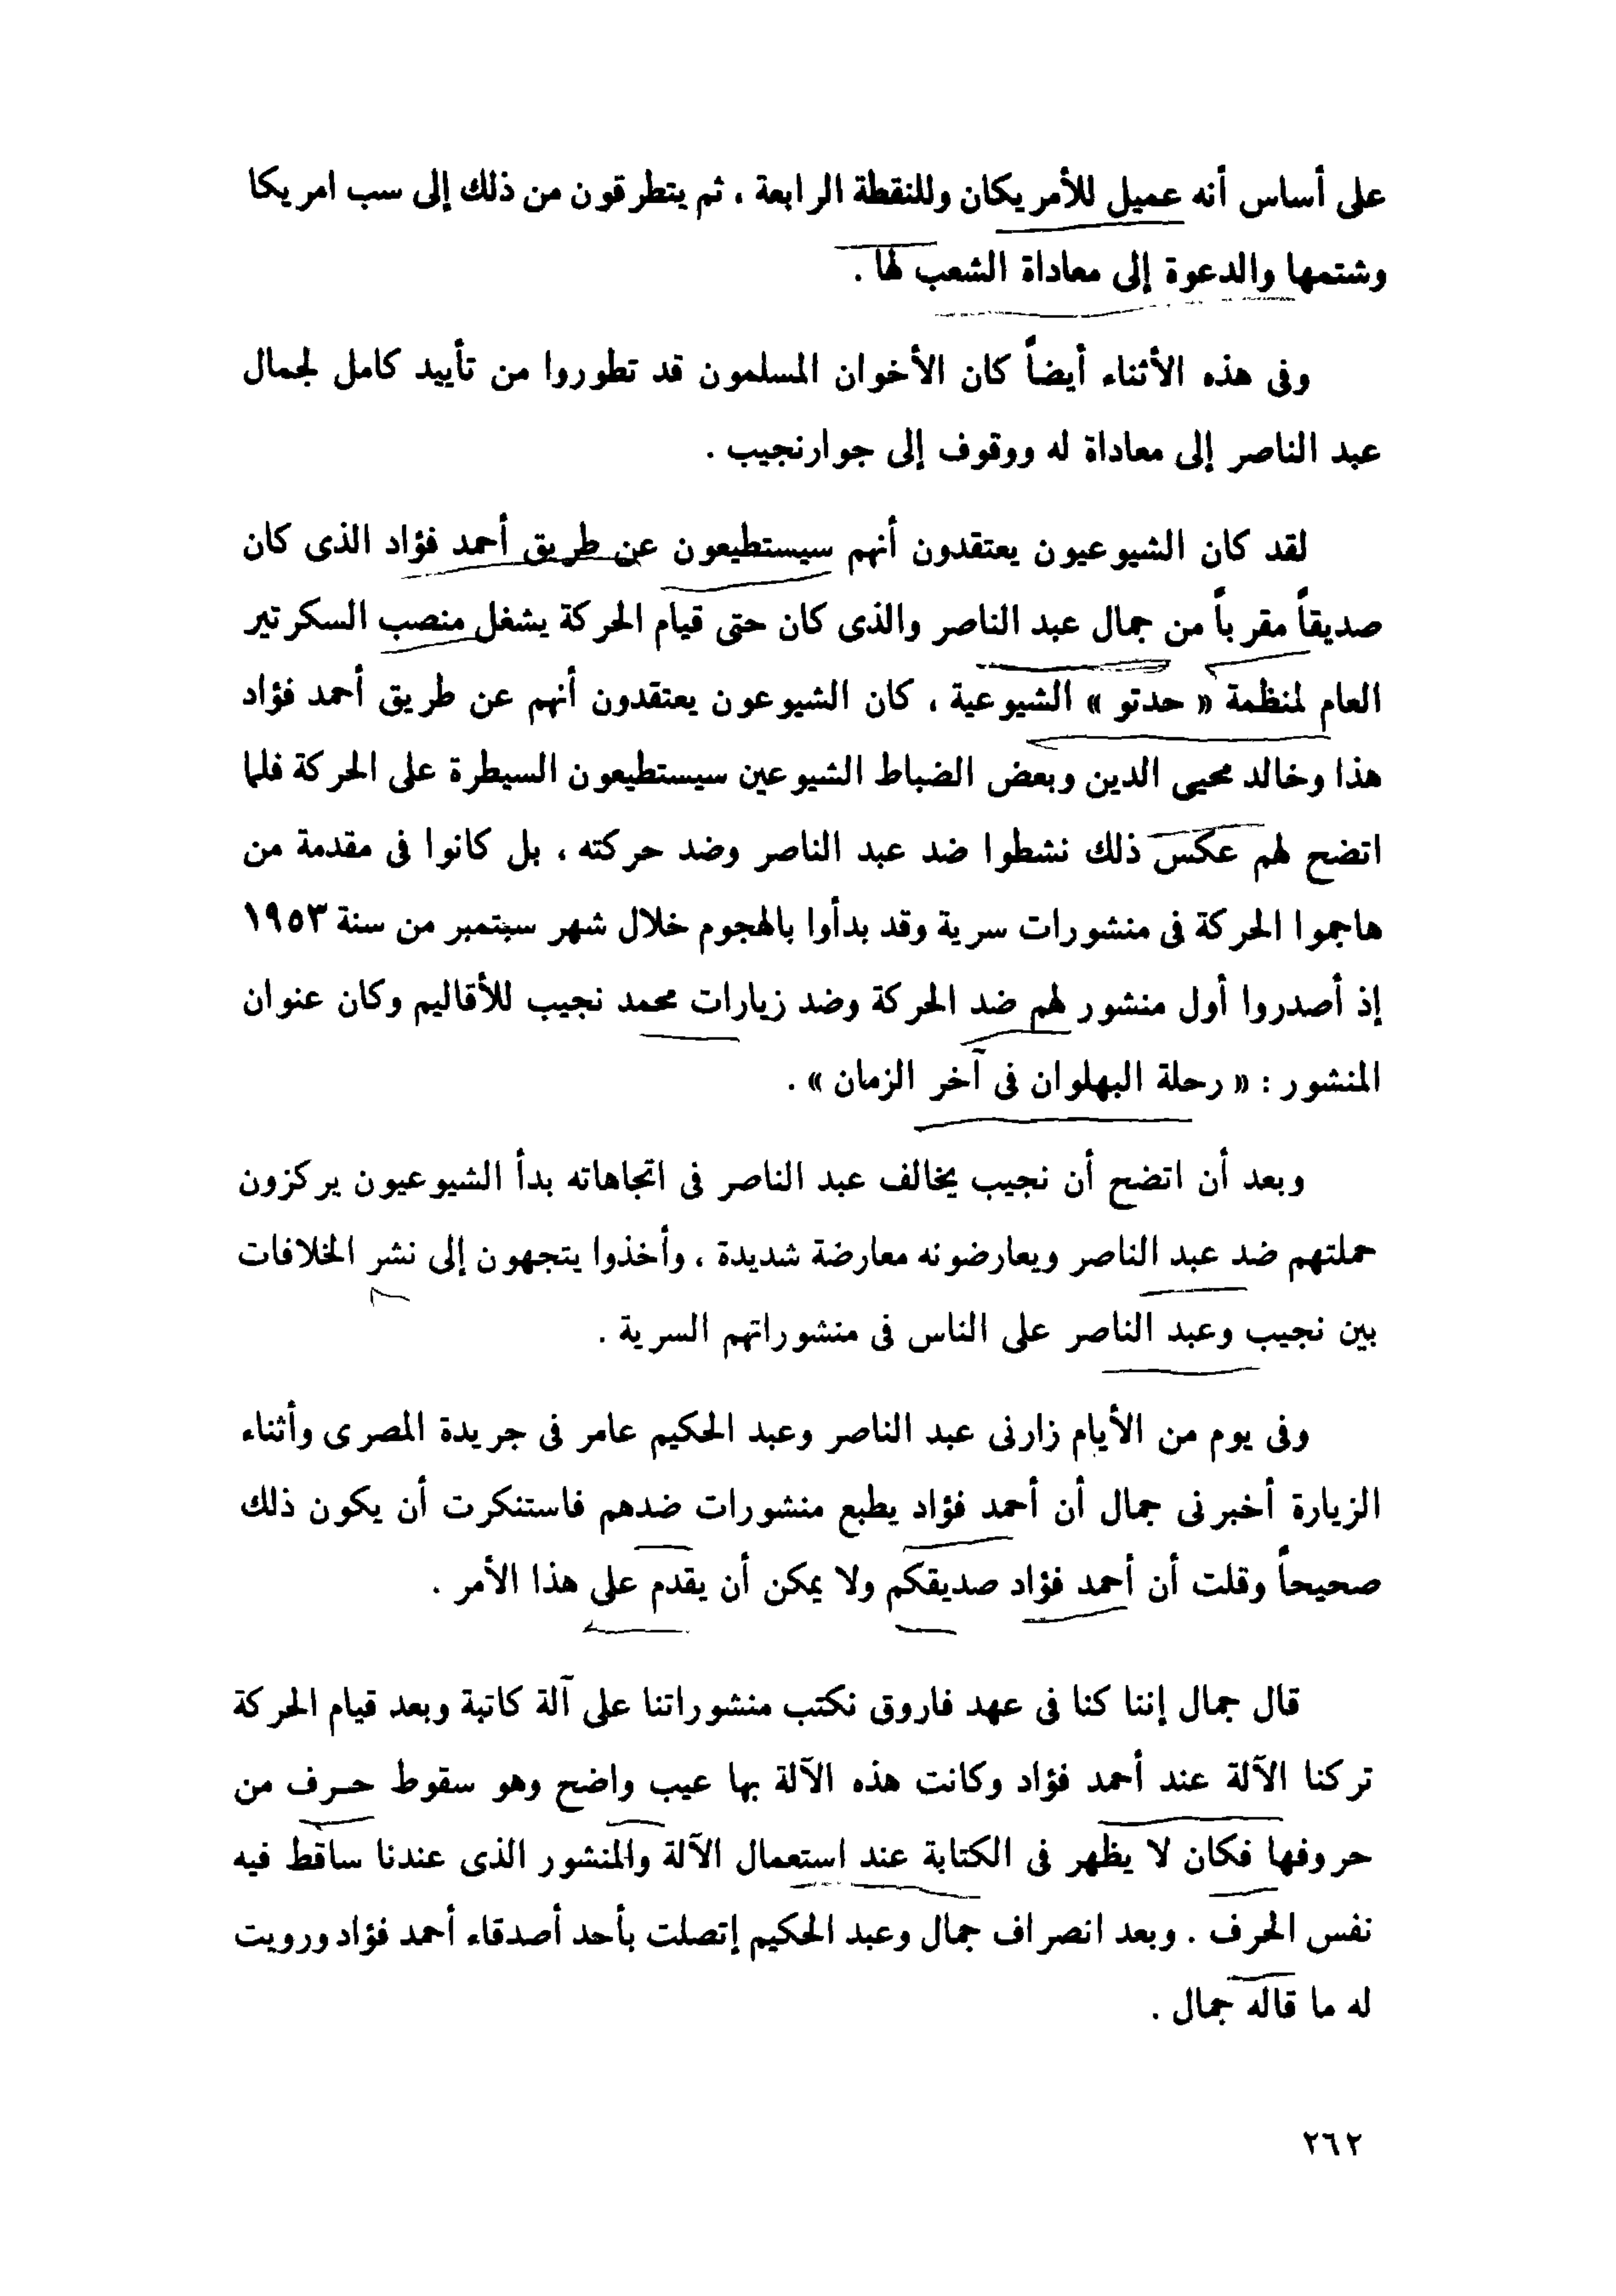 على أساس أنه عميل للأمريكان وللنقطة الرابعة ، ثم يتطرقون من ذلك إلى سب امريكا
وشتمها والدعوة إلى معاداة الشعب لها .
وفى هذه الأثناء أيضاً كان الأخوان المسلمون قد تطوروا من تأييد كامل لجمال
عبد الناصر إلى معاداة له ووقوف إلى جوار نجيب .
لقد كان الشيوعيون يعتقدون أنهم سيستطيعون عن طريق أحمد فؤاد الذى كان
صديقاً مقرباً من جمال عبد الناصر والذى كان حتى قيام الحركة يشغل منصب السكرتير
العام لمنظمة « حدتو » الشيوعية ، كان الشيوعون يعتقدون أنهم عن طريق أحمد فؤاد
هذا وخالد محيى الدين وبعض الضباط الشيوعين سيستطيعون السيطرة على الحركة فلما
اتضح لهم عكس ذلك نشطوا ضد عبد الناصر وضد حركته ، بل كانوا فى مقدمة من
هاجموا الحركة فى منشورات سرية وقد بدأوا بالهجوم خلال شهر سبتمبر من سنة ١٩٥٣
إذ أصدروا أول منشور لهم ضد الحركة وضد زيارات محمد نجيب للأقاليم وكان عنوان
المنشور : « رحلة البهلوان فى آخر الزمان » .
وبعد أن اتضح أن نجيب يخالف عبد الناصر فى اتجاهاته بدأ الشيوعيون يركزون
حملتهم ضد عبد الناصر ويعارضونه معارضة شديدة ، وأخذوا يتجهون إلى نشر الخلافات
بين نجيب وعبد الناصر على الناس فى منشوراتهم السرية .
وفى يوم من الأيام زارنى عبد الناصر وعبد الحكيم عامر فى جريدة المصرى وأثناء
الزيارة أخبرنى جمال أن أحمد فؤاد يطبع منشورات ضدهم فاستنكرت أن يكون ذلك
صحيحاً وقلت أن أحمد فؤاد صديقكم ولا يمكن أن يقدم على هذا الأمر .
قال جمال إننا كنا فى عهد فاروق نكتب منشوراتنا على آلة كاتبة وبعد قيام الحركة
تركنا الآلة عند أحمد فؤاد وكانت هذه الآلة بها عيب واضح وهو سقوط حرف من
حروفها فكان لا يظهر فى الكتابة عند استعمال الآلة والمنشور الذى عندنا ساقط فيه
نفس الحرف . وبعد انصراف جمال وعبد الحكيم إتصلت بأحد أصدقاء أحمد فؤاد ورويت
له ما قاله جمال .
٢٦٢